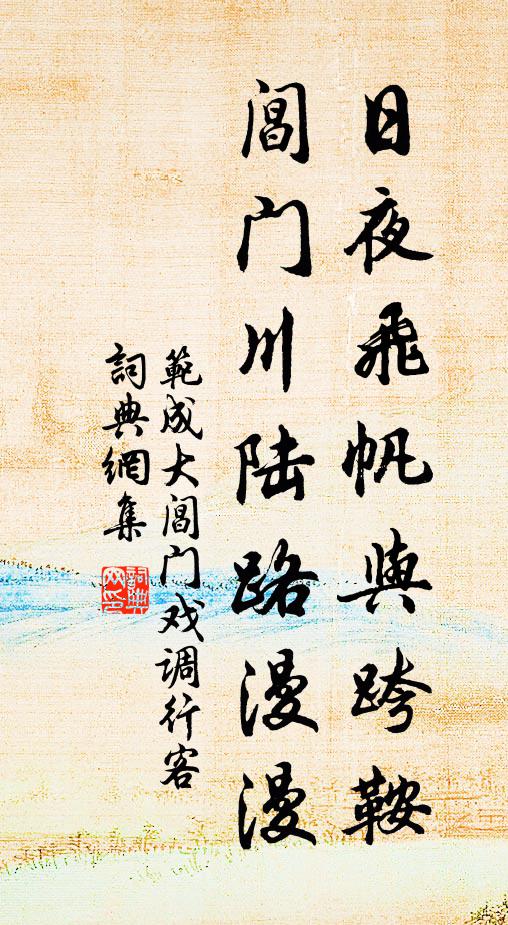 日夜飛帆與跨鞍
閶门川陆路漫漫
範成大閶门戏调行客
詞典網集